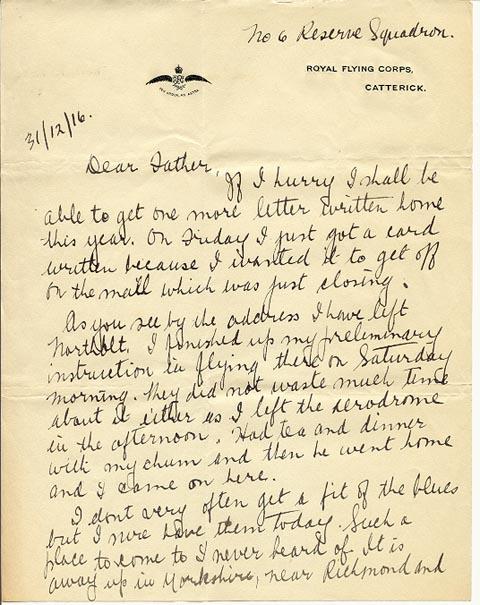 No 6 Reserve Squadron.
ROYAL FLYING CORPS,
CATTERICK.
PER ARDUA AD ASTRA
31/12/16.
Dear Father,
If I hurry I shall be
able to get one more letter written home
this year. On Friday I just got a card
written because I wanted it to get off
on the mail which was just closing.
As you see by the address I have left
Northolt. I finished up my preliminary
instruction in flying there on Saturday
morning. They did not waste much time
about it either as I left the aerodrome
in the afternoon. Had tea and dinner
with my chum and then he went home
and I came on here.
I dont very often get a fit of the blues
but I sure have them today. Such a
place to come to I never heard of. It is
away up in Yorkshire, near Richmond and